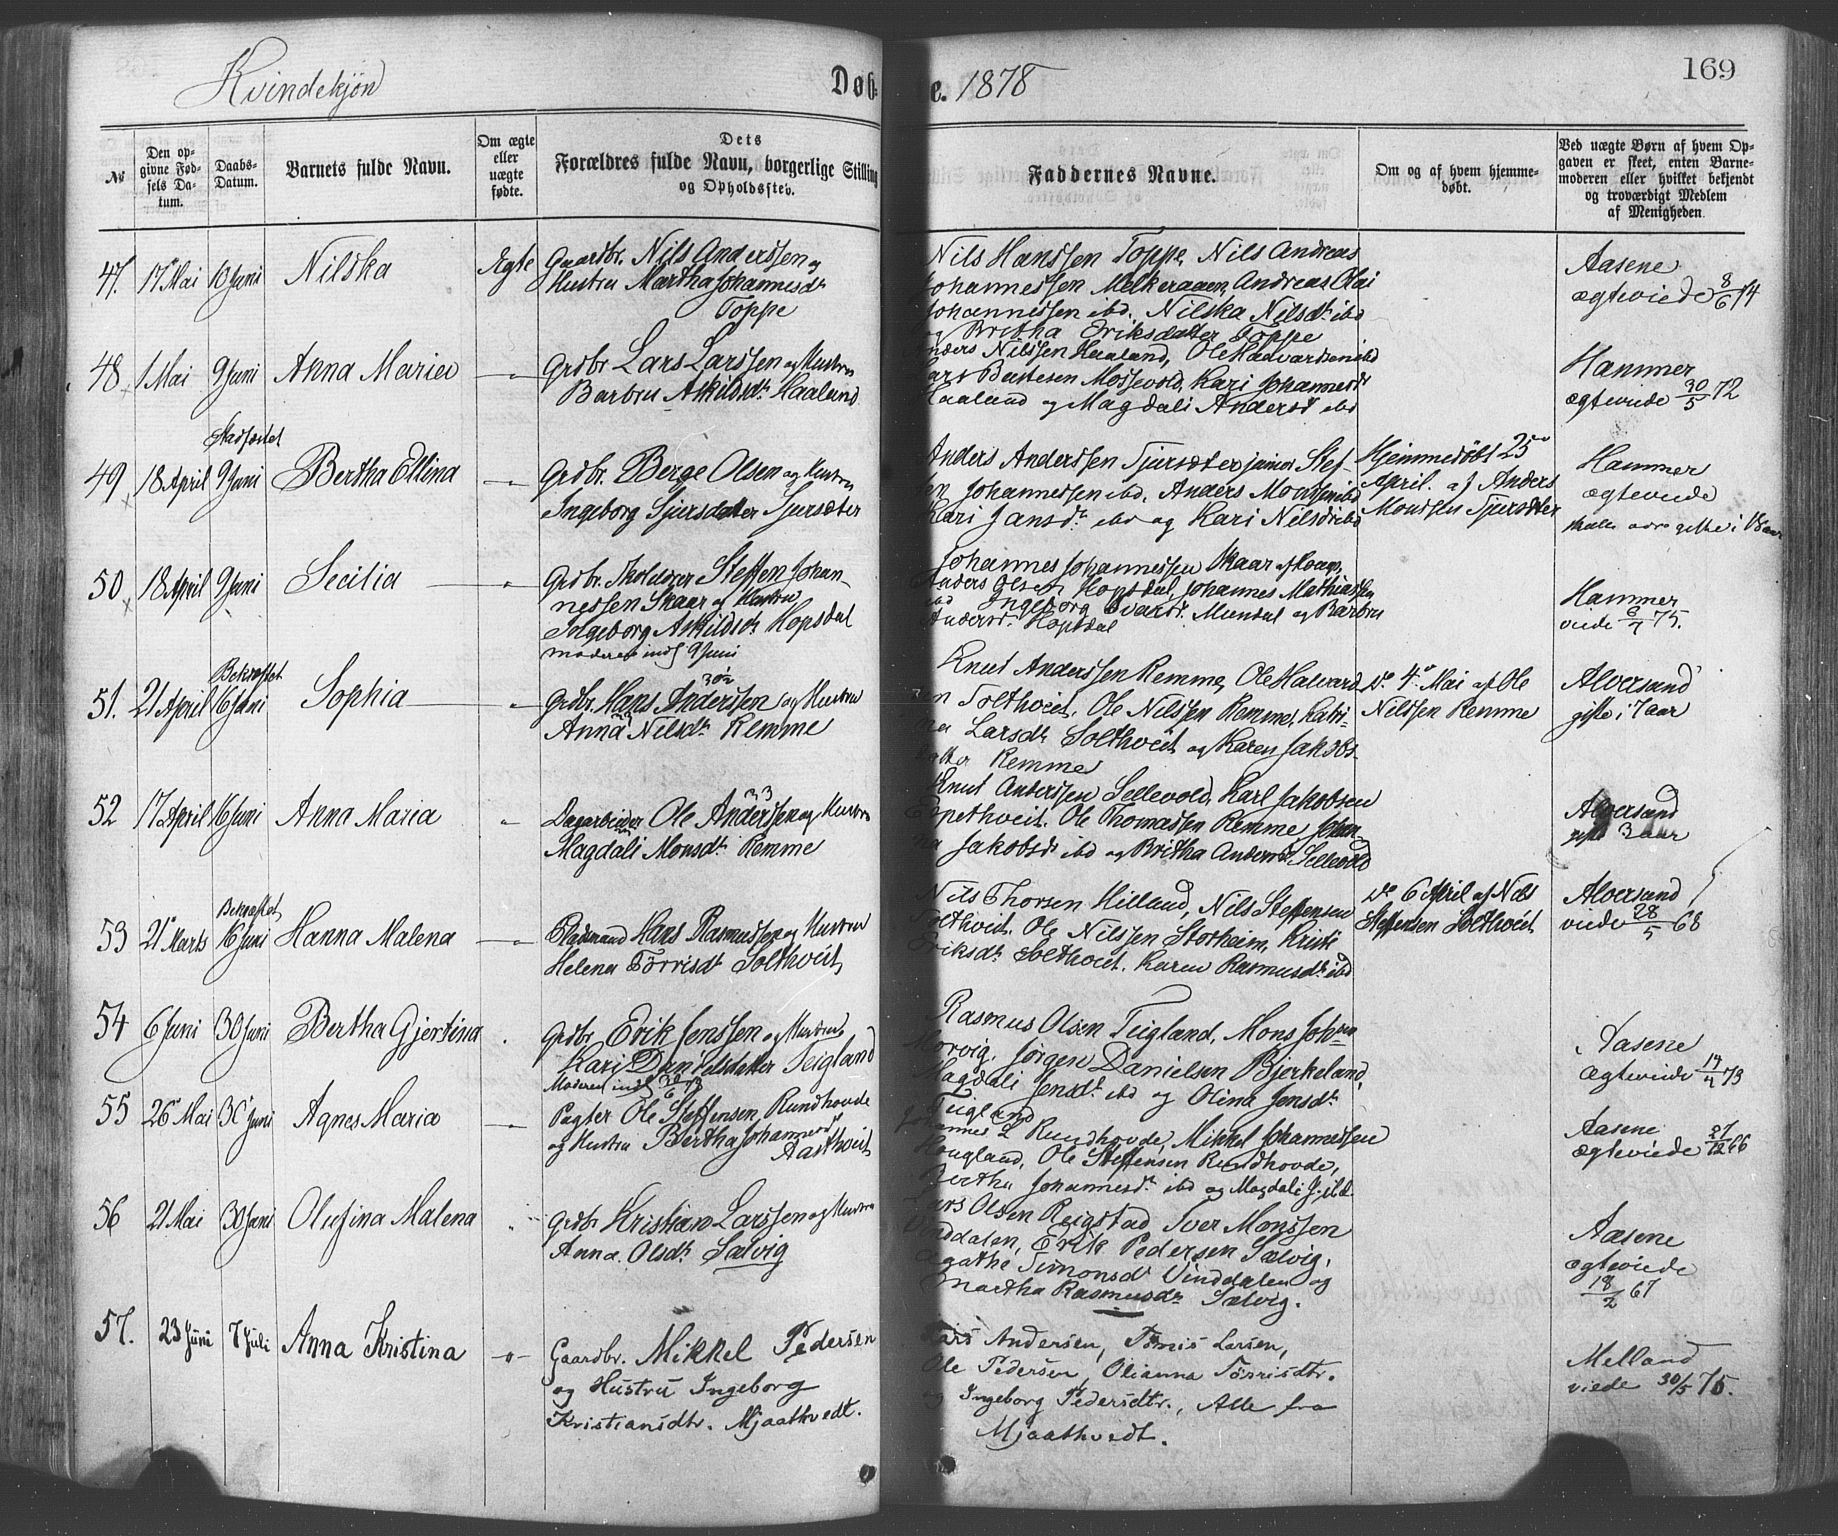 Kvindekjøn
Døb e. 1878
169
№
Den opgivne Fødsels Datum.
Daabs-Datum.
Barnets fulde Navn.
Om ægte eller uægte fødte.
Dets Forældres fulde Navn, borgerlige Stilling og Opholdssted.
Faddernes Navne.
Om og af hvem hjemmedøbt.
Ved uægte Børn af hvem Opgaven er skeet, enten Barnemoderen eller hvilket bekjendt og troværdigt Medlem af Menigheden.
47. 17 Mai 10 Juni Nilska Ægte
Gaardbr. Nils Anderssen og
Hustru Martha Johannesdr
Toppe
Nils Hanssen Toppe, Nils Andreas
Johannessen Melkeraaen, Andreas Olai
Johannessen ibd. Nilska Nilsdr ibd
og Britha Eriksdatter Toppe
Aasene
ægteviede 8/6 74
48 1 Mai 9 Juni Anna Maria
Grdbr Lars Larssen og Hustru
Barbru Askildsdr Haaland
Anders Nilssen Haaland, Ole Halvardsen ibd
Lars Bertesen Mossevold, Kari Johannesdr
Haaland og Magdali Andersdr ibd
Hammer
ægteviede 30/5 72
Stadfæstet
49 18 April 9 Juni Bertha Ellina
Grdbr. Berge Olsen og Hustru
Ingeborg Sjursdatter Tjursæter
Anders Anderssen Tjursæter junior Stef-
fen Johannessen ibd. Anders Monsen ibd
Kari Jansdr ibd og Kari Nilsdr ibd
Hjemmedøbt 25de
April af Anders
Monssen Tjursæter
Hammer
ægteviede
50 18 April 9 Juni Secilia
Grdbr. Skolelærer Steffen Johan-
nessen Skaar og Hustru
Ingeborg Askildsdr Hopsdal
moderen indl 9 Juni
Johannes Johannessen Skaar af Hougs,
Anders Olsen Hopsdal, Johannes Mathiassen
ibd Ingeborg Ivarsdr Mundal og Barbru
Andersdr Hopsdal
Hammer
viede 6/7 75.
Bekræftet
51. 21 April 16 Juni Sophia
Grdbr. Hans Anderssen og Hustru
Anna Nilsdr Remme
Knut Anderssen Remme, Ole Halvard-
sen Solthveit, Ole Nilssen Remme, Katri-
na Larsdr Solthveit og Karen Jakobs-
datter Remme
do 4de Mai af Ole
Nilssen Remme
Alversund
gifte i 7 aar
52 17 April 16 Juni Anna Maria
Dagarbeider Ole Anderssen og Hustru
33
Magdali Monsdr Remme
Knut Anderssen Sellevold, Karl Jakobsen
Espethveit. Ole Thomassen Remme Johan-
na Jakobsdr ibd og Britha Andersdr Sellevold
Alversund
gifte 3 aar
Bekræftet
53 21 Marts 16 Juni Hanna Malena
Pladsmand Hans Rasmussen og Hustru
Helena Tørrisdr Solthveit
Nils Thorsen Hilland, Nils Steffensen
Solthveit. Ole Nilssen Storheim, Kristi
Eriksdr Solthveit. Karen Rasmusdr ibd
do 6 April af Nils
Steffensen Solthveit
Alversund
viede 28/5 68
54 6 Juni 30 Juni Bertha Gjertina
Grdbr Erik Jenssen og Hustru
Kari Danielsdatter Teigland
Moderen indl 30/6 78
Rasmus Olsen Teigland, Mons Johan
Morvig, Jørgen Danielsen Bjerkeland,
Magdali Jensdr ibd og Olina Jensdr
Teigland
Aasene
ægteviede 14/4 73
55 26 Mai 30 Juni Agnes Maria
Pagter Ole Steffensen Rundhovde
og Hustru Bertha Johannesdr
Aasthveit
Johannes L Rundhovde, Mikkel Johannessen
Hougland, Ole Steffensen Rundhovde,
Bertha Johannesdr ibd og Magdali J. ibd.
Aasene
ægteviede 27/12 66
56 21 Mai 30 Juni Olufina Malena
Grdbr Kristian Larssen og Hustru
Anna Olsdr Sælvig
Lars Olsen Reigstad, Iver Monssen
Vinddalen, Erik Pedersen Sælvig,
Agatha Simonsdr Vinddalen og
Martha Rasmusdr Sælvig.
Aasene
ægteviede
18/2 67
57. 23 Juni 7 Juli Anna Kristina
Gaardbr. Mikkel Pedersen
og Hustru Ingeborg
Kristiansdtr. Mjaathvedt.
Lars Andersen, Tomis Larsen,
Ole Pedersen, Olianna Tørrisdtr.
og Ingeborg Pedersdtr., Alle fra
Mjaathvedt.
Melland
viede 30/5 75.